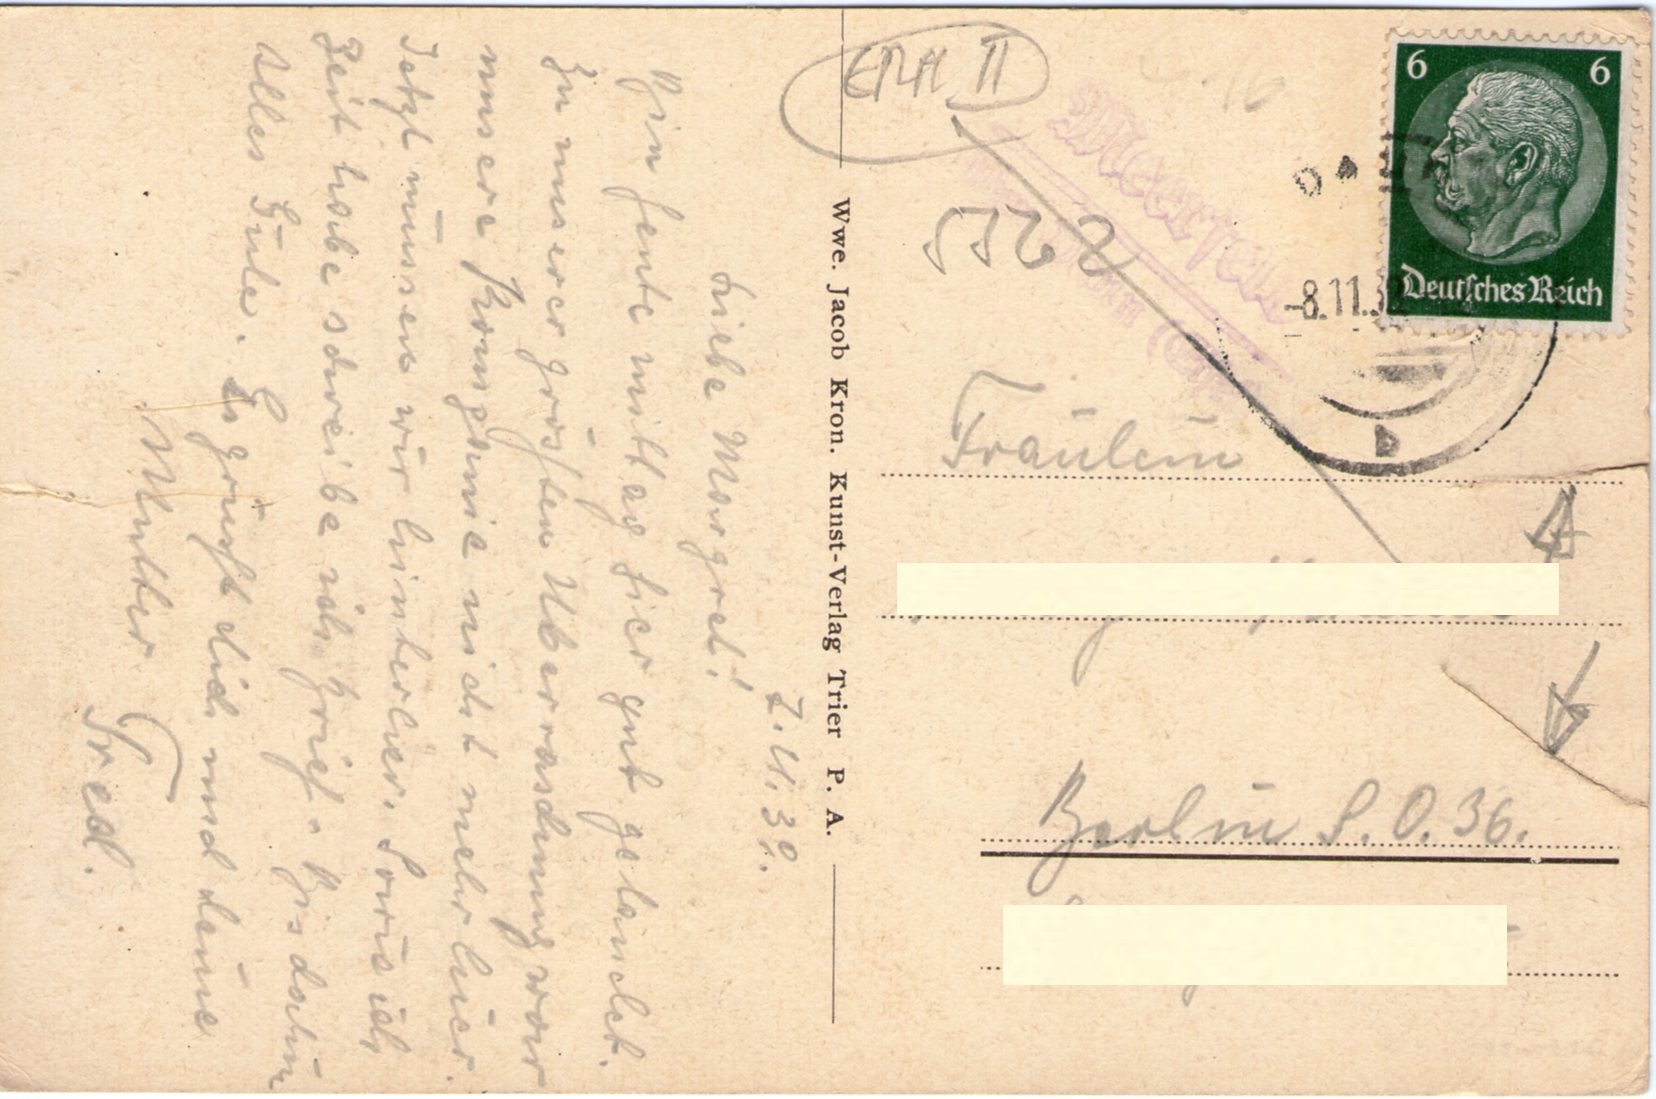 7.11.39.
Liebe Margret!
Bin heute mittag hier gut gelandet.
Zu unserer größten Überraschung war
unsere Kompanie nicht mehr hier.
Jetzt müssen wir hinterher. Sowie ich
Zeit habe schreibe ich Brief. Bis dahin
Alles Gute. Es grüßt dich und deine
Mutter
Fred.
Wwe. Jacob Kron. Kunst-Verlag Trier P. A.
6 6
Deutsches Reich
-8.11.3
b
Fräulein
Berlin S.O. 36.